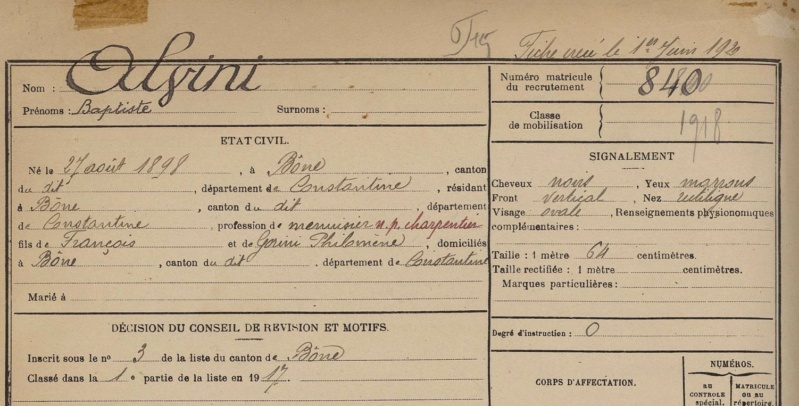 Fiche créé le 1er Juin 1920
Nom : Alvini
Prénoms : Baptiste Surnoms :
Numéro matricule du recrutement 840
Classe de mobilisation 1918
ETAT CIVIL.
Né le 27 août 1898, à Bône, canton
du dit, département de Constantine, résidant
à Bône, canton du dit, département
de Constantine, profession de menuisier n.p. charpentier
fils de François et de Gorini Philomène, domiciliés
à Bône, canton du dit, département de Constantine
Marié à
SIGNALEMENT
Cheveux noirs, Yeux marrons
Front vertical, Nez rectiligne
Visage ovale, Renseignements physionomiques
complémentaires :
Taille : 1 mètre 64 centimètres.
Taille rectifiée : 1 mètre centimètres.
Marques particulières :
Degré d'instruction : 0
DÉCISION DU CONSEIL DE REVISION ET MOTIFS.
Inscrit sous le no 3 de la liste du canton de Bône
Classé dans la 1e partie de la liste en 1917.
CORPS D'AFFECTATION.
NUMÉROS.
AU CONTROLE spécial.
MATRICULE ou au répertoire.